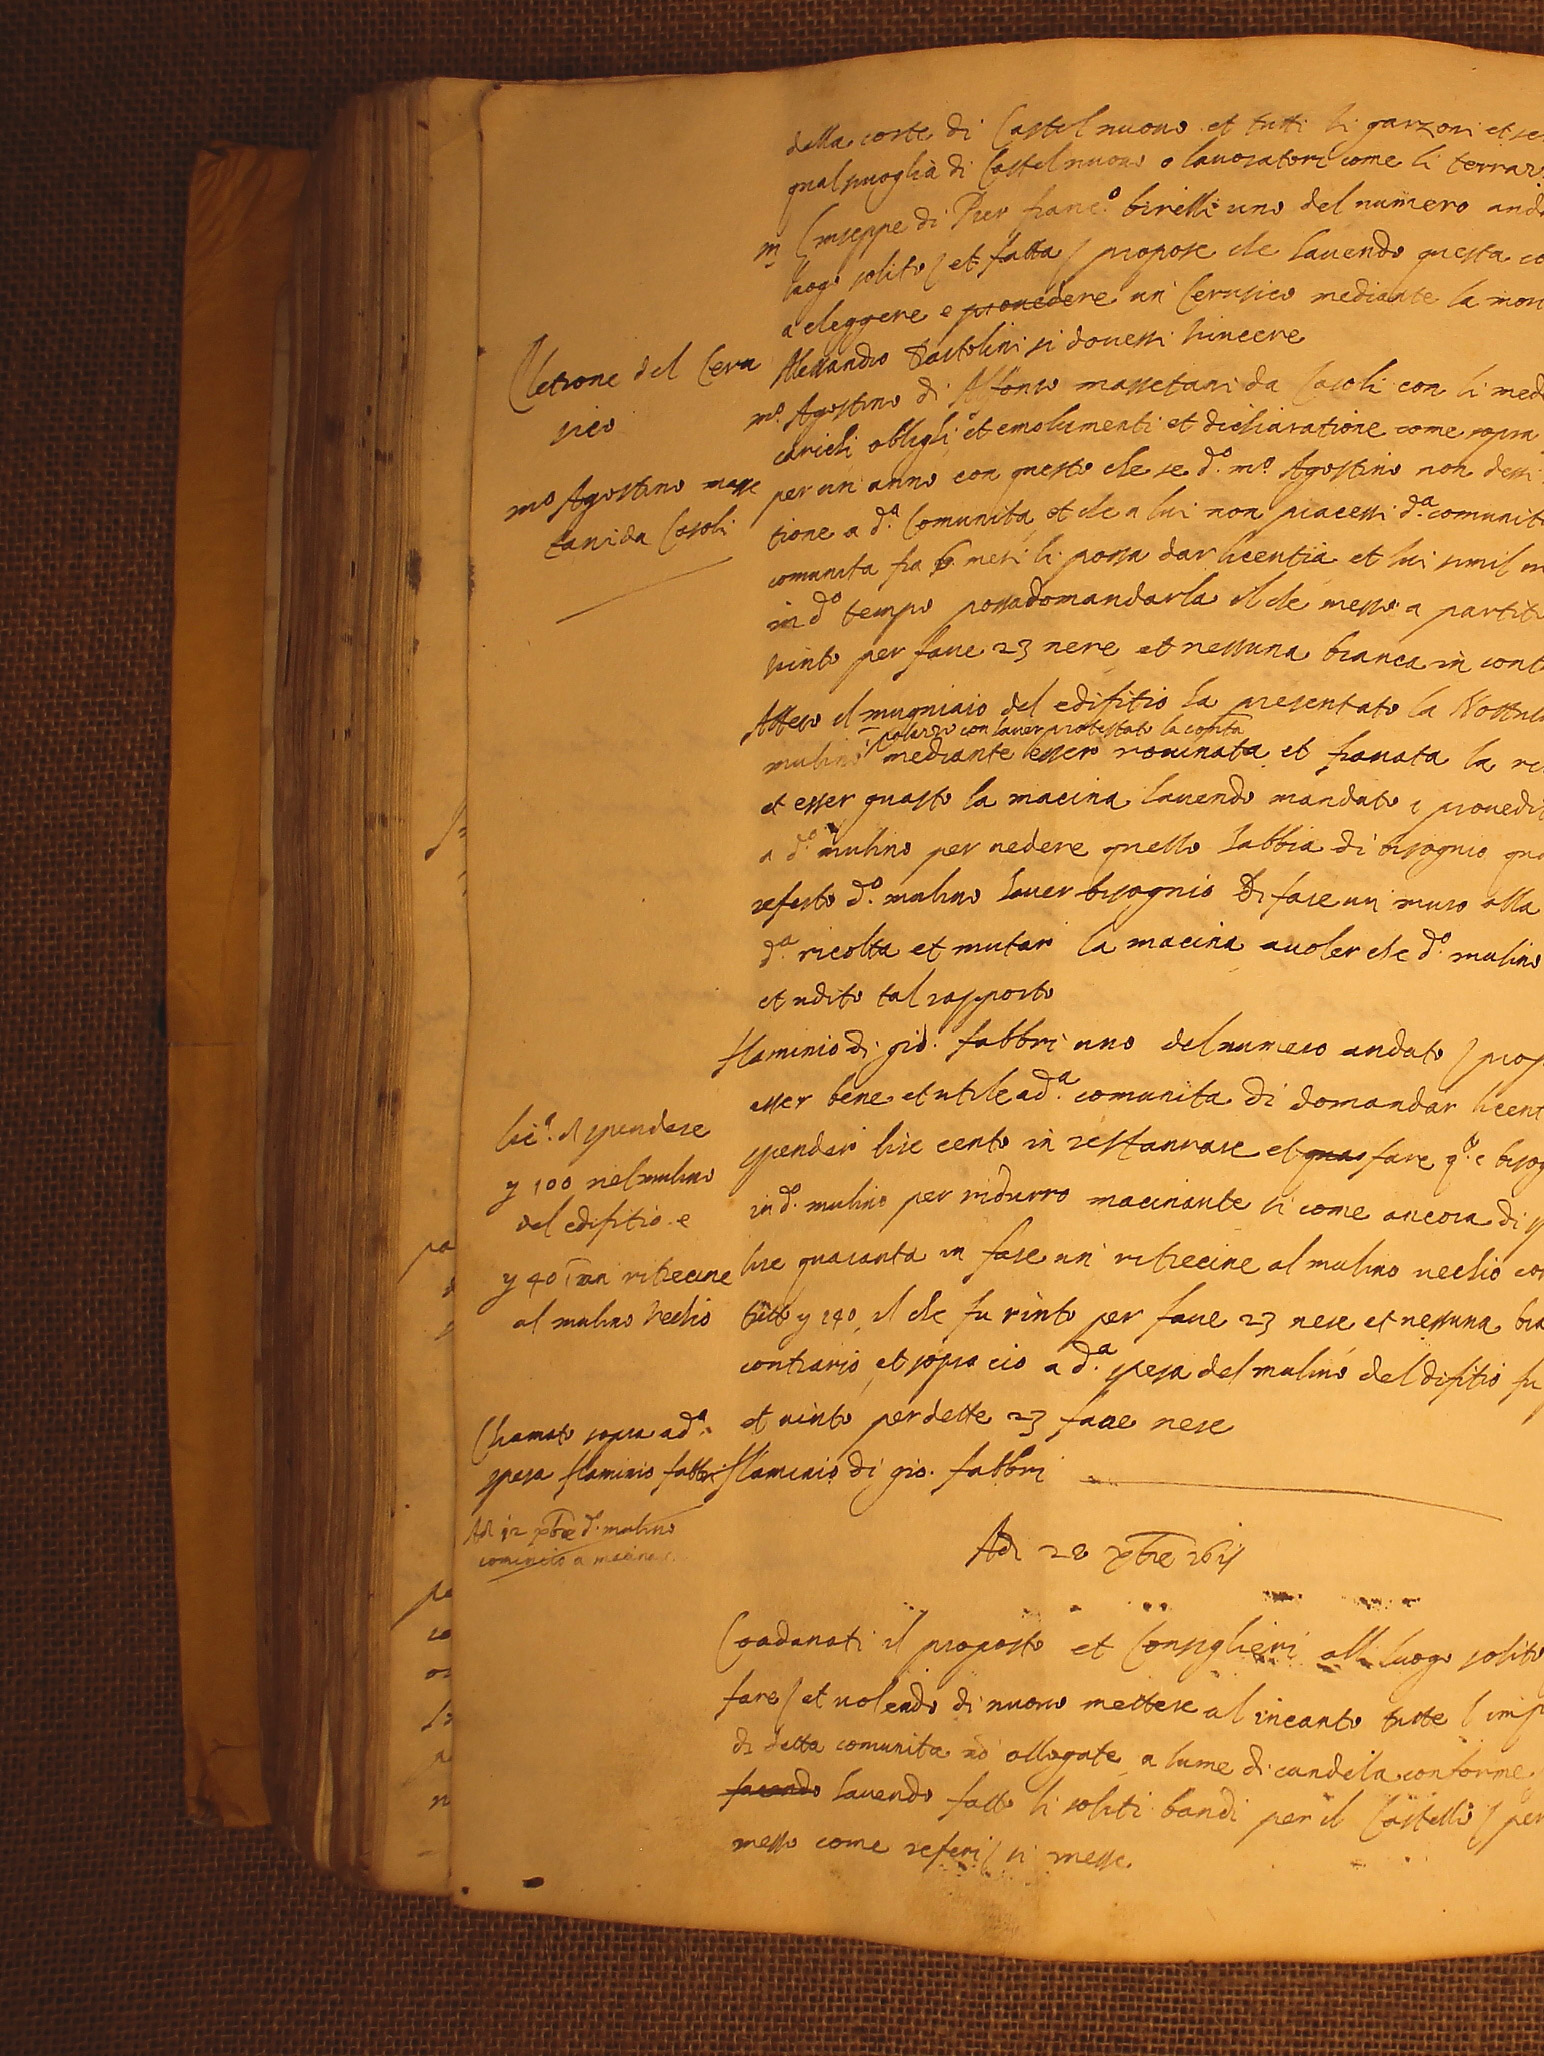 della corte di Castelnuovo et tutti li garzoni et se
qualsivoglia di Castelnuovo o lavoratori come li terraz
m Giuseppe di Pier franc.o birelli uno del numero anda
luogo solito / et fatta / propose che havendo questa co
a eleggere e provedere un Cerusico mediante la mor
Alessandro Bartolini si dovessi vincere
Eletione del Ceru
sico
m.o Agostino di Alfonso massetani da Casoli con li med
carichi oblighi et emolumenti et dichiaratione come sopra
m.o Agostino masse
tani da Casoli
per un anno con questo che se d.o m.o Agostino non dessi
tione a d.a Comunita et che a lui non piacessi d.a comunit
comunita fra 6 mesi li possa dar licentia et lui simil m
in d.o tempo possa domandarla il che messo a partit
vinto per fave 23 nere et nessuna bianca in cont
Atteso il mugniaio del edifitio ha presentato la Nottul
con haver protestato la
mulino mediante esser rovinata et franata la ri
et esser guasto la macina havendo mandato i provedi
a d.o mulino per vedere quello habbia di bisognio qua
referto d.o mulino haver bisognio di fare un muro alla
d.a ricolta et mutar la macina a voler che d.o mulino
et udito tal rapporto
flaminio di gio. fabbri uno del numero andato / prop
esser bene et utile a d.a comunita di domandar licent
lic.a di spendere
y 100 nel mulino
del edifitio e
y 40 in un ritrecine
al mulino Vechio
spender lire cento in restaurare et qua fare q.o e bisog
in d.o mulino per ridurro macinante si come ancora di sp
lire quaranta in fare un ritrecine al mulino vechio co
tutto y 140 il che fu vinto per fave 23 nere et nessuna bia
contrario et sopra cio a d.a spesa del mulino del difitio fu
et vinto per dette 23 fave nere
Chiamato sopra a d.a
spesa flaminio fabbri
flaminio di gio. fabbri
Adi 12 xbre d.o mulino
comincio a macinar
Adi 28 xbre 1611
Coadunati il proposto et Consiglieri all luogo solito
fare / et volendo di nuovo mettere al incanto tutte l imp
di detta comunita no allogate a lume di candela conforme
facendo havendo fatto li soliti bandi per il Castello / per
messo come referi / si messe.